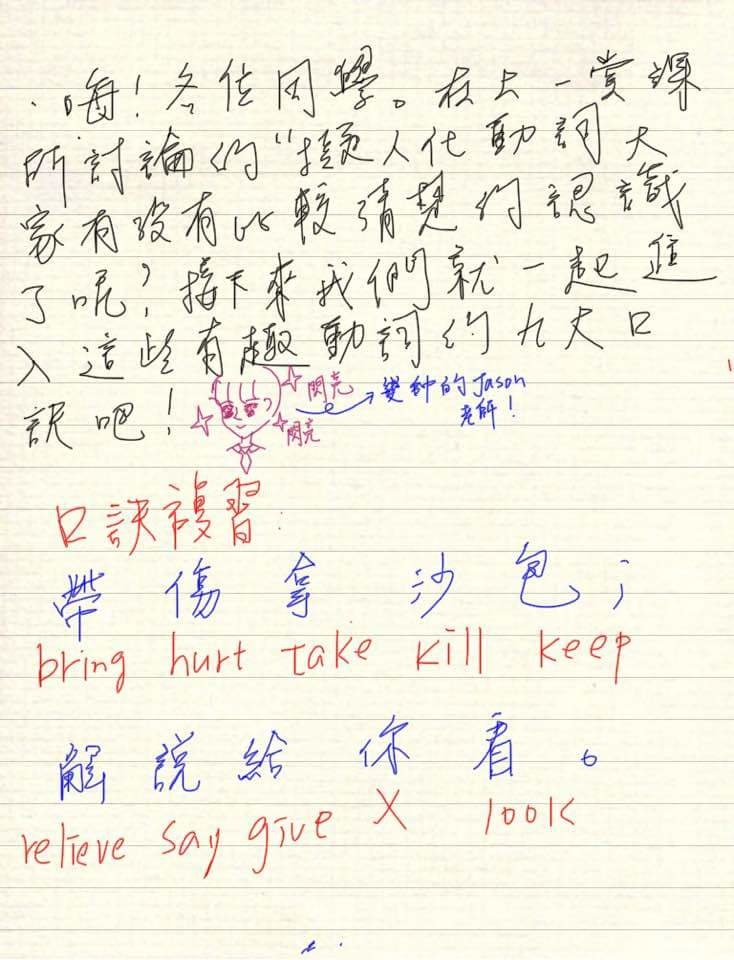 嗨!各位同學。在上一堂課
所討論的"擬人化動詞大
家有沒有比較清楚的認識
了呢?接下來我們就一起進
入這些有趣動詞的九大口
訣吧!
閃亮
變帥的Jason
老師!
閃亮
口訣複習:
帶 傷 拿 沙 包;
bring hurt take kill keep
解 說 給 你 看。
relieve say give X look